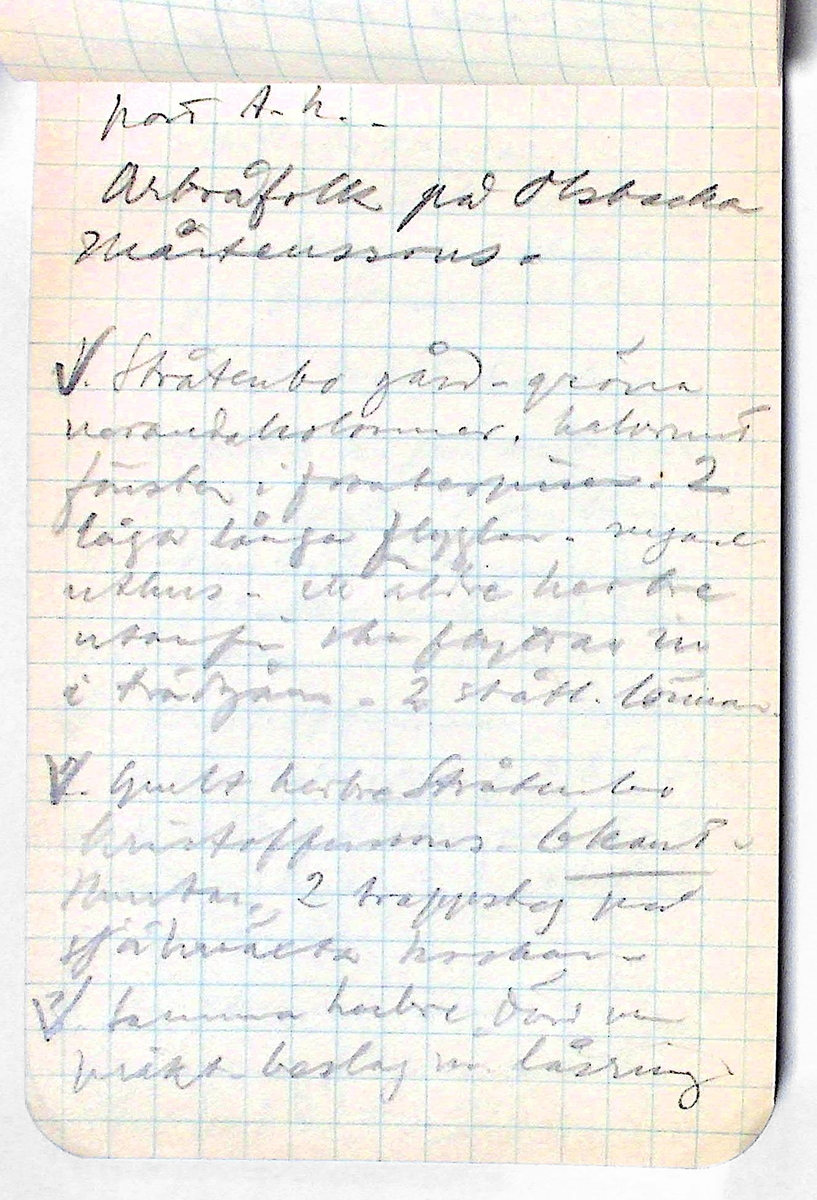 port A. h. -
Arbråfolk på Olsbacka
Mårtenssons.
1. Stråtenbo gård - gröna
verandakolonner. halvrunt
fönster i frontespisen. 2
låga långa flyglar.
uthus - ett äldre herbre
utanför ska flyttas in
i trädgården - 2 ståtl. lönnar.
2. Gult herbre Stråtenbo
Kristofferssons. 6kant
2 trappsteg på
självväxta krokar -
3. Samma herbre, dörr m
präkt. beslag m. låsring